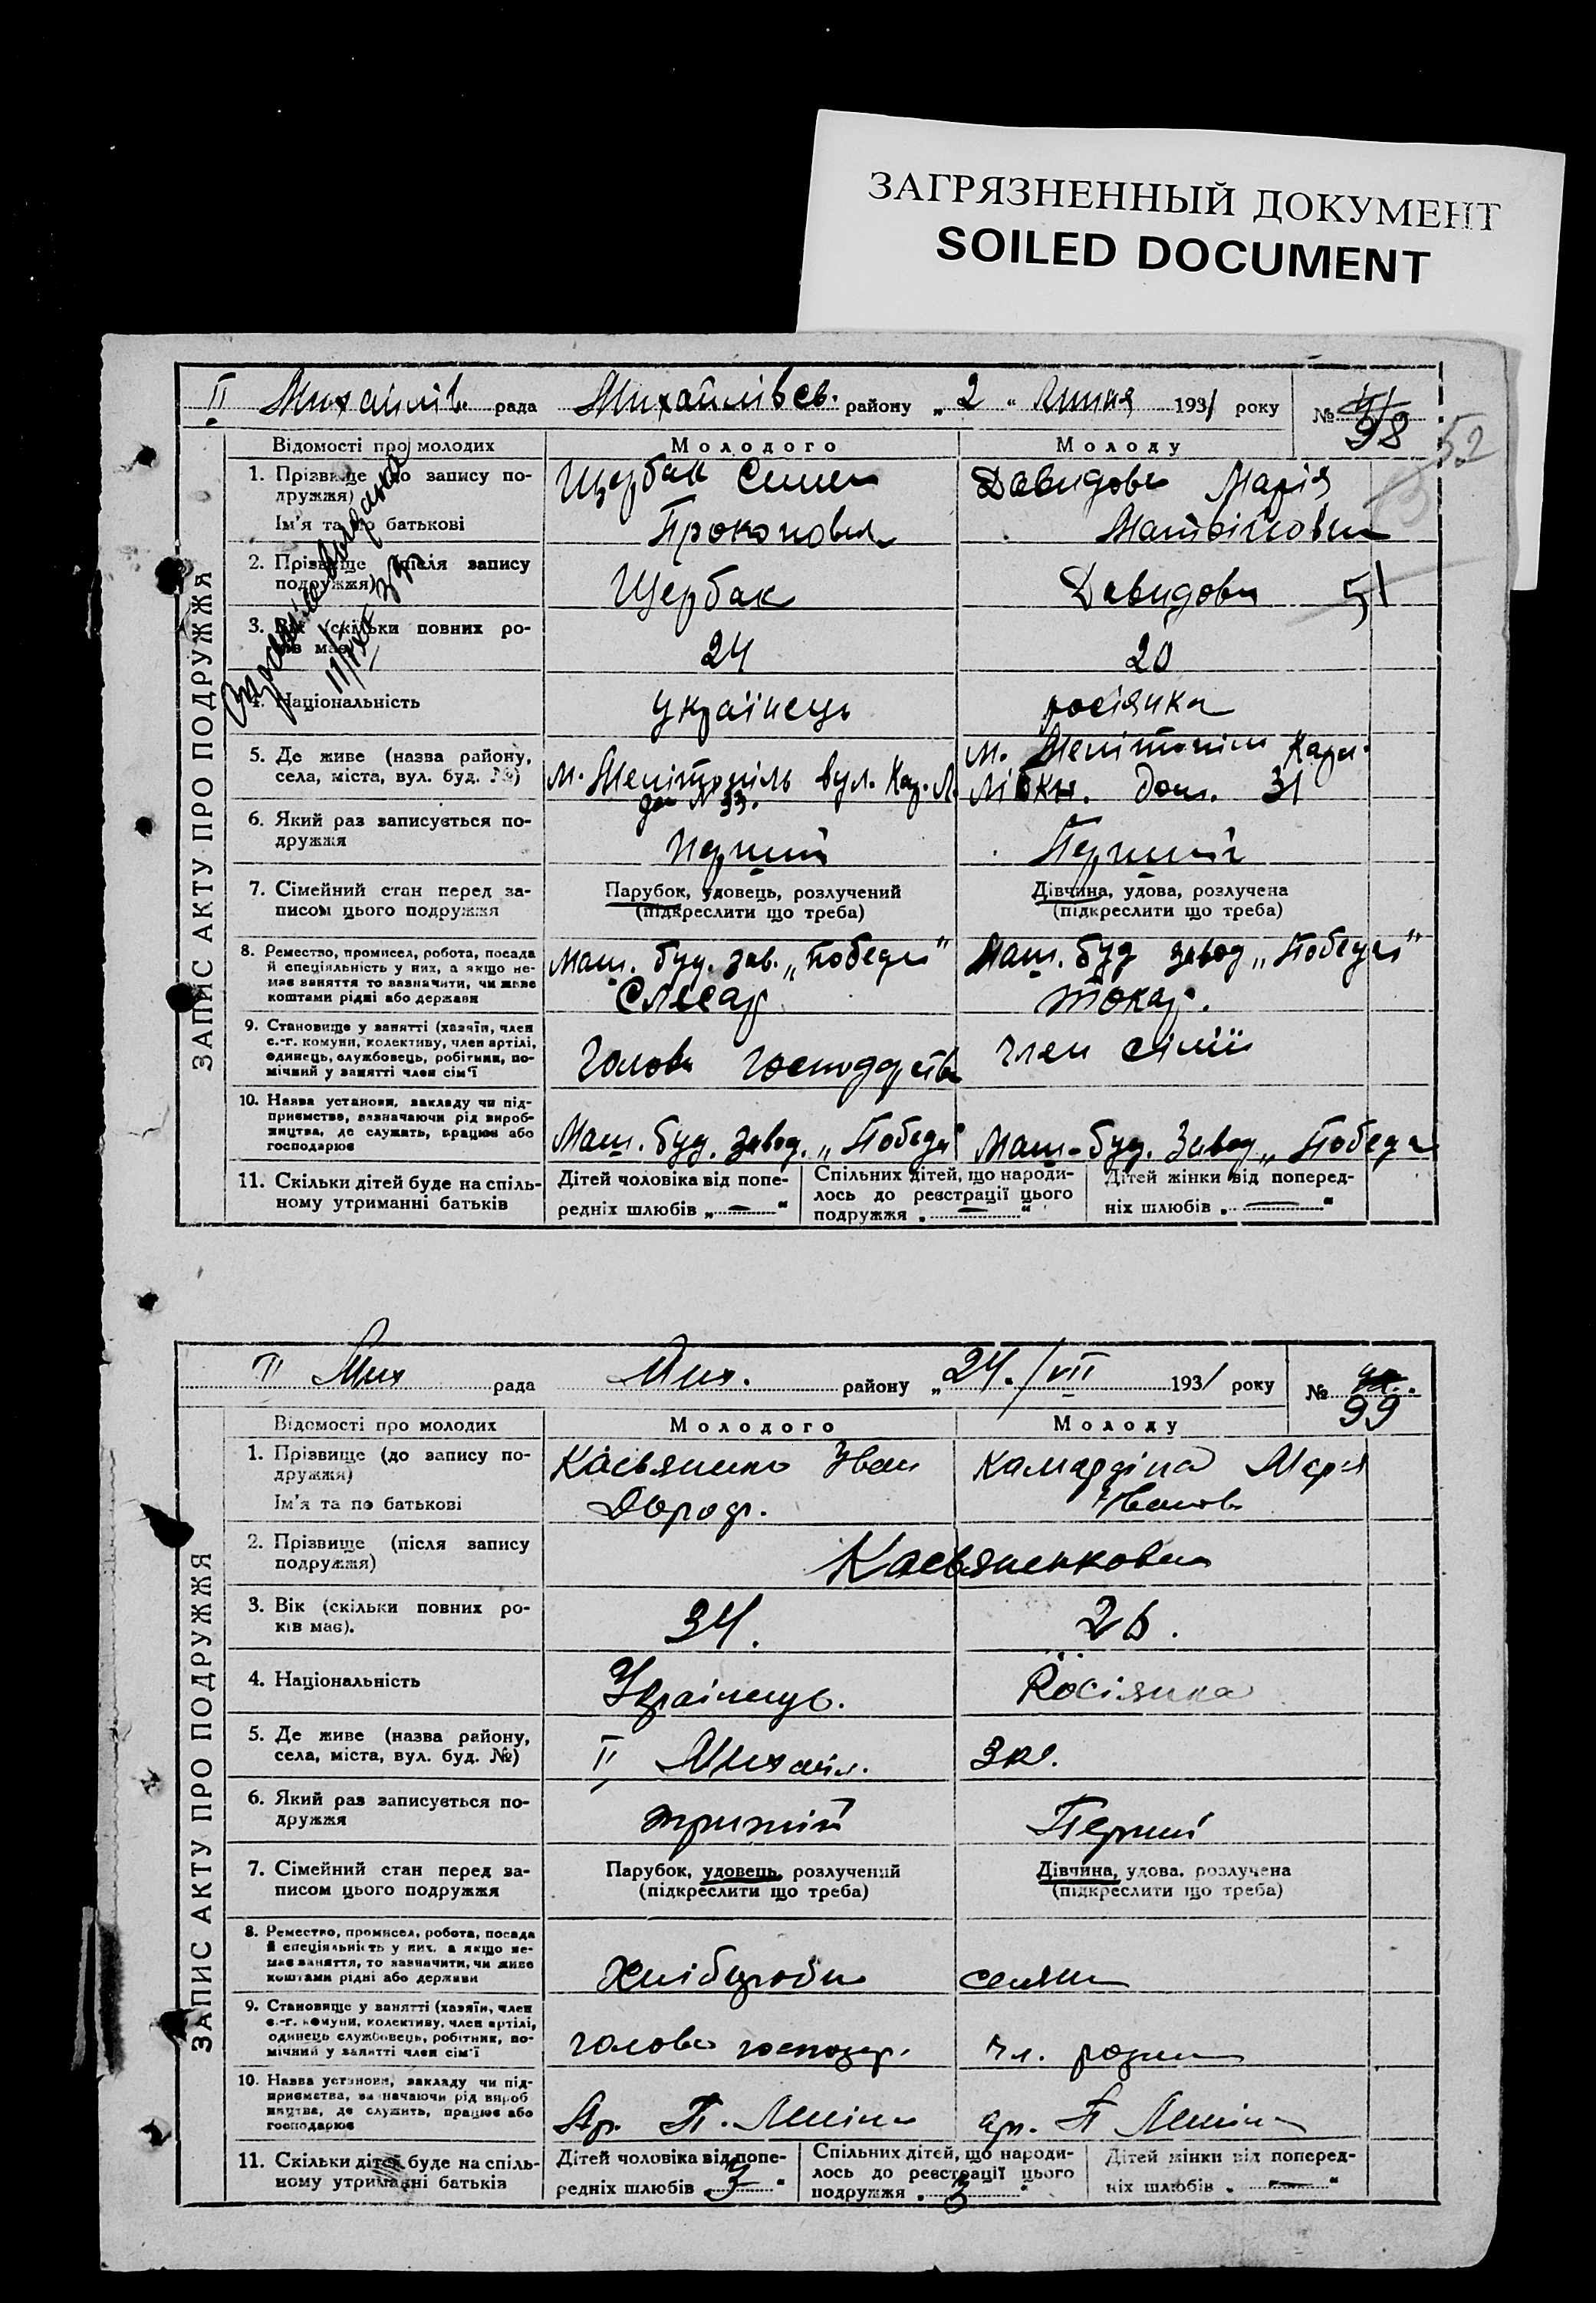 ЗАГРЯЗНЕННЫЙ ДОКУМЕНТ
SOILED DOCUMENT
II Михайлів. рада Михайлівсв. району „ 2 “ Липня 1931 року № 98
52
ЗАПИС АКТУ ПРО ПОДРУЖЖЯ
Відомості про молодих Молодого Молоду
1. Прізвище (до запису по-
дружжя)
Ім'я та по батькові
Щербак Семен
Прокопович
Давидова Марія
Матвійовна
2. Прізвище (після запису
подружжя)
Щербак Давидова 51
3. Вік (скільки повних ро-
ків має)
24 20
4. Національність українець росіянка
5. Де живе (назва району,
села, міста, вул. буд. №)
м. Мелітопіль вул. Кар. Л.
дом № 33.
м. Мелітопіль Карл.
Лібкн. дом. 31
6. Який раз записується по-
дружжя
перший Перший
7. Сімейний стан перед за-
писом цього подружжя
Парубок, удовець, розлучений
(підкреслити що треба)
Дівчина, удова, розлучена
(підкреслити що треба)
8. Ремество, промисел, робота, посада
й спеціяльність у них, а якщо не-
має заняття то зазначити, чи живе
коштами рідні або держави
Маш. буд. зав. „Победа“
Слесар
Маш. буд завод „Победа“
токар.
9. Становище у занятті (хазяїн, член
с.-г. комуни, колективу, член артілі,
одинець, службовець, робітник, по-
мічний у занятті член сім'ї
Голова господарства член сімїї
10. Назва установи, закладу чи під-
приємства, зазначаючи рід вироб-
ництва, де служить, працює або
господарює
Маш. буд. завод. „Победа“ Маш-буд. завод „Победа
11. Скільки дітей буде на спіль-
ному утриманні батьків
Дітей чоловіка від попе-
редніх шлюбів „ — “
Спільних дітей, що народи-
лось до реєстрації цього
подружжя „ — “
Дітей жінки від поперед-
ніх шлюбів „ — “
II Мих рада Мих. району „ 24./VII 1931 року № 99
ЗАПИС АКТУ ПРО ПОДРУЖЖЯ
Відомості про молодих Молодого Молоду
1. Прізвище (до запису по-
дружжя)
Ім'я та по батькові
Касьяненко Іван
Камардіна Марія
Іванов
2. Прізвище (після запису
подружжя)
Касьяненкови
3. Вік (скільки повних ро-
ків має).
34. 26.
4. Національність Українець. Росіянка
5. Де живе (назва району,
села, міста, вул. буд. №)
II Михайл.
6. Який раз записується по-
дружжя
третій Перший
7. Сімейний стан перед за-
писом цього подружжя
Парубок, удовець, розлучений
(підкреслити що треба)
Дівчина, удова, розлучена
(підкреслити що треба)
8. Ремество, промисел, робота, посада
й спеціяльність у них, а якщо не-
має заняття, то зазначити, чи живе
коштами рідні або держави
Хлібороби селянк
9. Становище у занятті (хазяїн, член
с.-г. комуни, колективу, член артілі,
одинець службовець, робітник, по-
мічний у занятті член сім'ї
голова господар. чл. родини
10. Назва установи, закладу чи під-
приємства, зазначаючи рід вироб
ництва, де служить, працює або
господарює
Ар. П. Леніна ар. П Леніна
11. Скільки дітей буде на спіль-
ному утриманні батьків
Дітей чоловіка від попе-
редніх шлюбів „ 3 “
Спільних дітей, що народи-
лось до реєстрації цього
подружжя „ 3 “
Дітей жінки від поперед-
ніх шлюбів „ — “